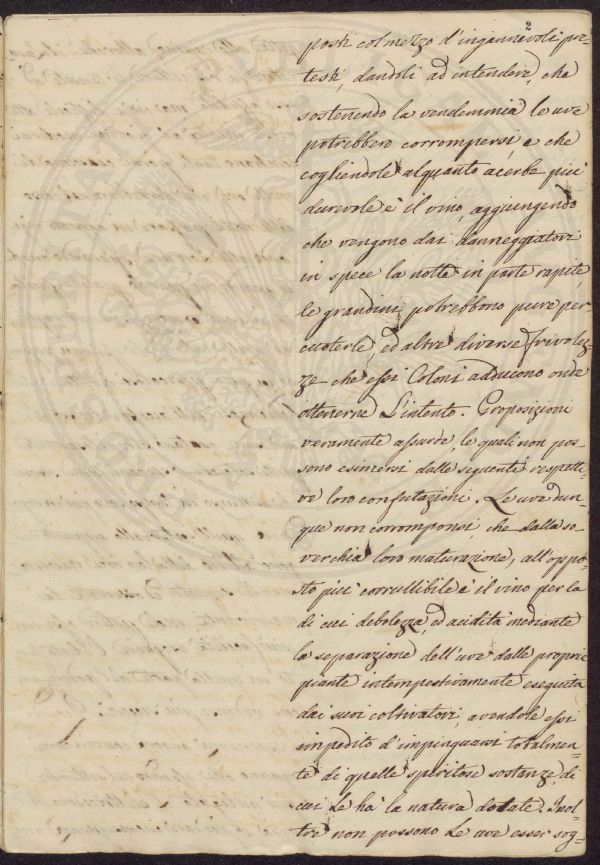 2
posti col mezzo d'ingannevoli pre-
testi, dandoli ad intendere, che
sostenendo la vendemmia le uve
potrebbero corrompersi, e che
cogliendole alquanto acerbe più
durevole è il vino, aggiungendo
che vengono dai danneggiatori
in spece la notte in parte rapite,
le grandini potrebbono pure per-
cuoterle, ed altre diverse frivolez-
ze che essi Coloni adducono onde
ottenerne l'intento. Proposizioni
veramente assurde, le quali non pos-
sono esimersi dalle seguenti respetti-
ve loro confutazioni. Le uve dun-
que non corromponsi, che dalla so-
verchia loro maturazione, all'oppo-
sto più corruttibile è il vino per la
di cui debolezza, ed acidità mediante
la separazione dell'uve dalle proprie
piante intempestivamente eseguita
dai suoi coltivatori, avendole essi
impedito d'impinguarsi totalmen-
te di quelle spiritose sostanze, di
cui le ha la natura dotate. Inol-
tre non possono le uve esser sog-